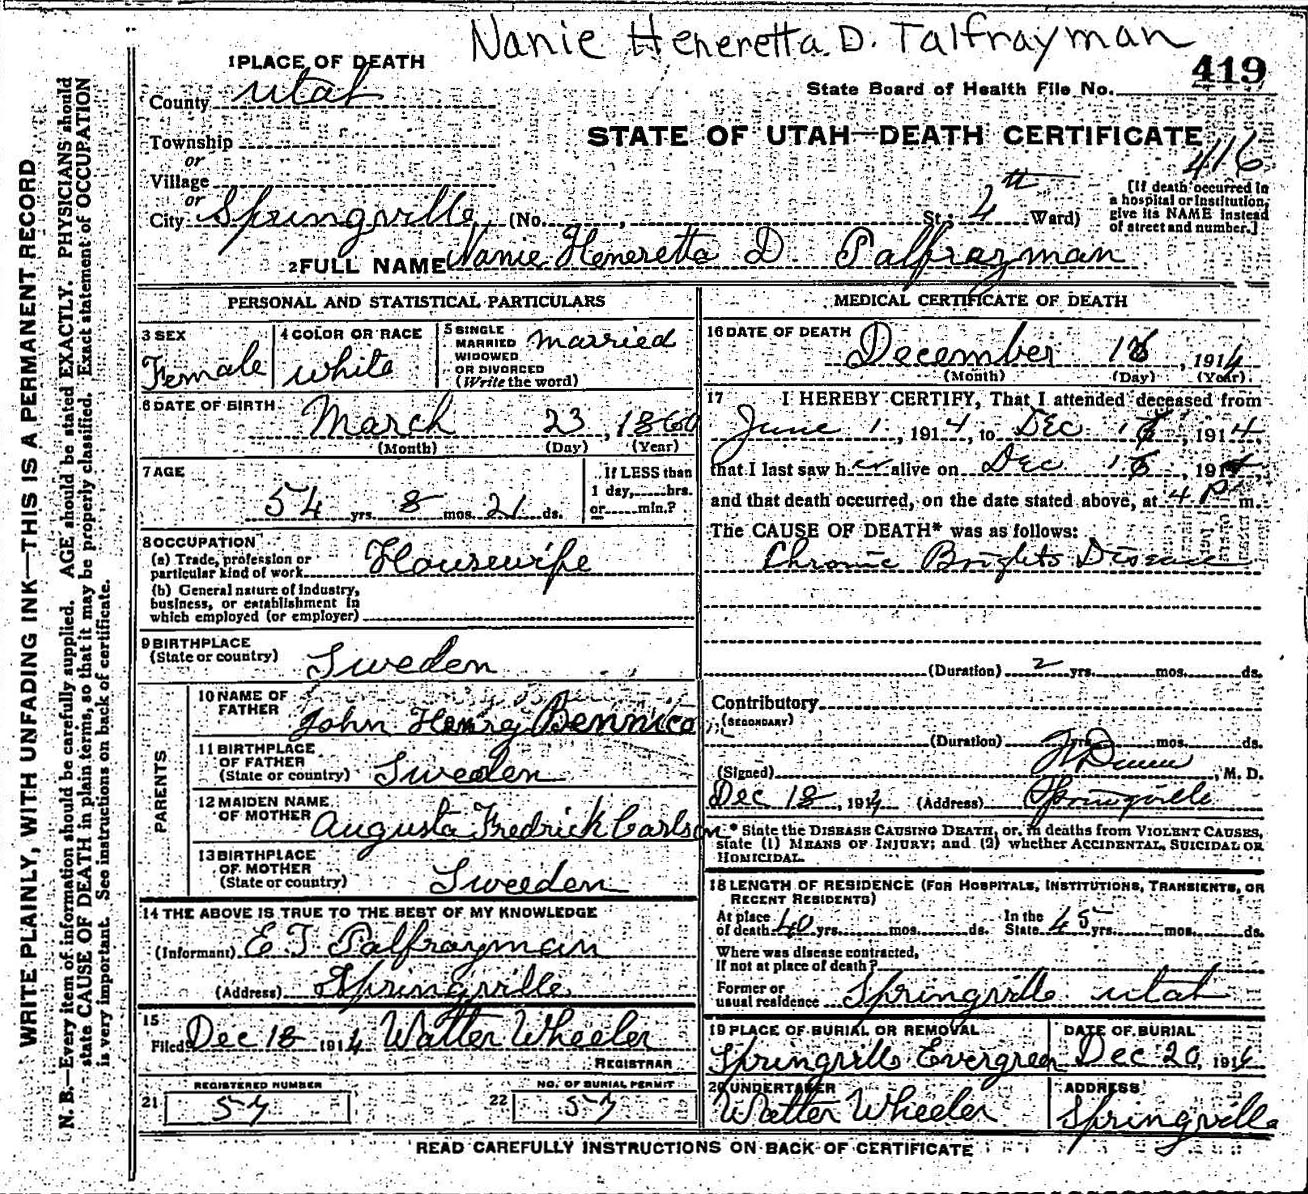 Nanie Heneretta. D. Talfrayman
1 PLACE OF DEATH
419
State Board of Health File No.
County Utah
STATE OF UTAH—DEATH CERTIFICATE
416
Township
or
Village
or
City Springville (No. , St.; 4th Ward)
[If death occurred in
a hospital or institution,
give its NAME instead
of street and number.]
2 FULL NAME Nanie Heneretta D. Palfrayman
PERSONAL AND STATISTICAL PARTICULARS
3 SEX
Female
4 COLOR OR RACE
white
5 SINGLE
MARRIED
WIDOWED
OR DIVORCED
(Write the word)
married
6 DATE OF BIRTH
March 23, 1860
(Month) (Day) (Year)
7 AGE
54 yrs. 8 mos. 21 ds.
If LESS than
1 day, hrs.
or min.?
8 OCCUPATION
(a) Trade, profession or
particular kind of work Housewife
(b) General nature of industry,
business, or establishment in
which employed (or employer)
9 BIRTHPLACE
(State or country) Sweden
PARENTS
10 NAME OF
FATHER
John Henry Bennico
11 BIRTHPLACE
OF FATHER
(State or country) Sweden
12 MAIDEN NAME
OF MOTHER Augusta Fredrick Carlson
13 BIRTHPLACE
OF MOTHER
(State or country) Sweeden
14 THE ABOVE IS TRUE TO THE BEST OF MY KNOWLEDGE
(Informant) E T Palfrayman
(Address) Springville
15
Filed Dec 18 1914 Walter Wheeler
REGISTRAR
REGISTERED NUMBER
21 57
NO. OF BURIAL PERMIT
22 57
MEDICAL CERTIFICATE OF DEATH
16 DATE OF DEATH
December , 1914
(Month) (Day) (Year)
17 I HEREBY CERTIFY, That I attended deceased from
June 1, 1914, to Dec , 1914,
that I last saw her alive on Dec , 1914,
and that death occurred, on the date stated above, at 4 P m.
The CAUSE OF DEATH* was as follows:
Chronic Brights Disease
(Duration) 2 yrs. mos. ds.
Contributory
(SECONDARY)
(Duration) yrs. mos. ds.
(Signed) Dunn, M. D.
Dec 18, 1914 (Address) Springville
* State the DISEASE CAUSING DEATH, or, in deaths from VIOLENT CAUSES,
state (1) MEANS OF INJURY; and (2) whether ACCIDENTAL, SUICIDAL OR
HOMICIDAL.
18 LENGTH OF RESIDENCE (FOR HOSPITALS, INSTITUTIONS, TRANSIENTS, OR
RECENT RESIDENTS)
At place
of death 40 yrs. mos. ds.
In the
State 45 yrs. mos. ds.
Where was disease contracted,
If not at place of death?
Former or
usual residence Springville Utah
19 PLACE OF BURIAL OR REMOVAL
Springville Evergreen
DATE OF BURIAL
Dec 20, 1914
20 UNDERTAKER
Walter Wheeler
ADDRESS
Springville
READ CAREFULLY INSTRUCTIONS ON BACK OF CERTIFICATE
WRITE PLAINLY, WITH UNFADING INK—THIS IS A PERMANENT RECORD
N. B.—Every item of information should be carefully supplied. AGE should be stated EXACTLY. PHYSICIANS should
state CAUSE OF DEATH in plain terms, so that it may be properly classified. Exact statement of OCCUPATION
is very important. See instructions on back of certificate.